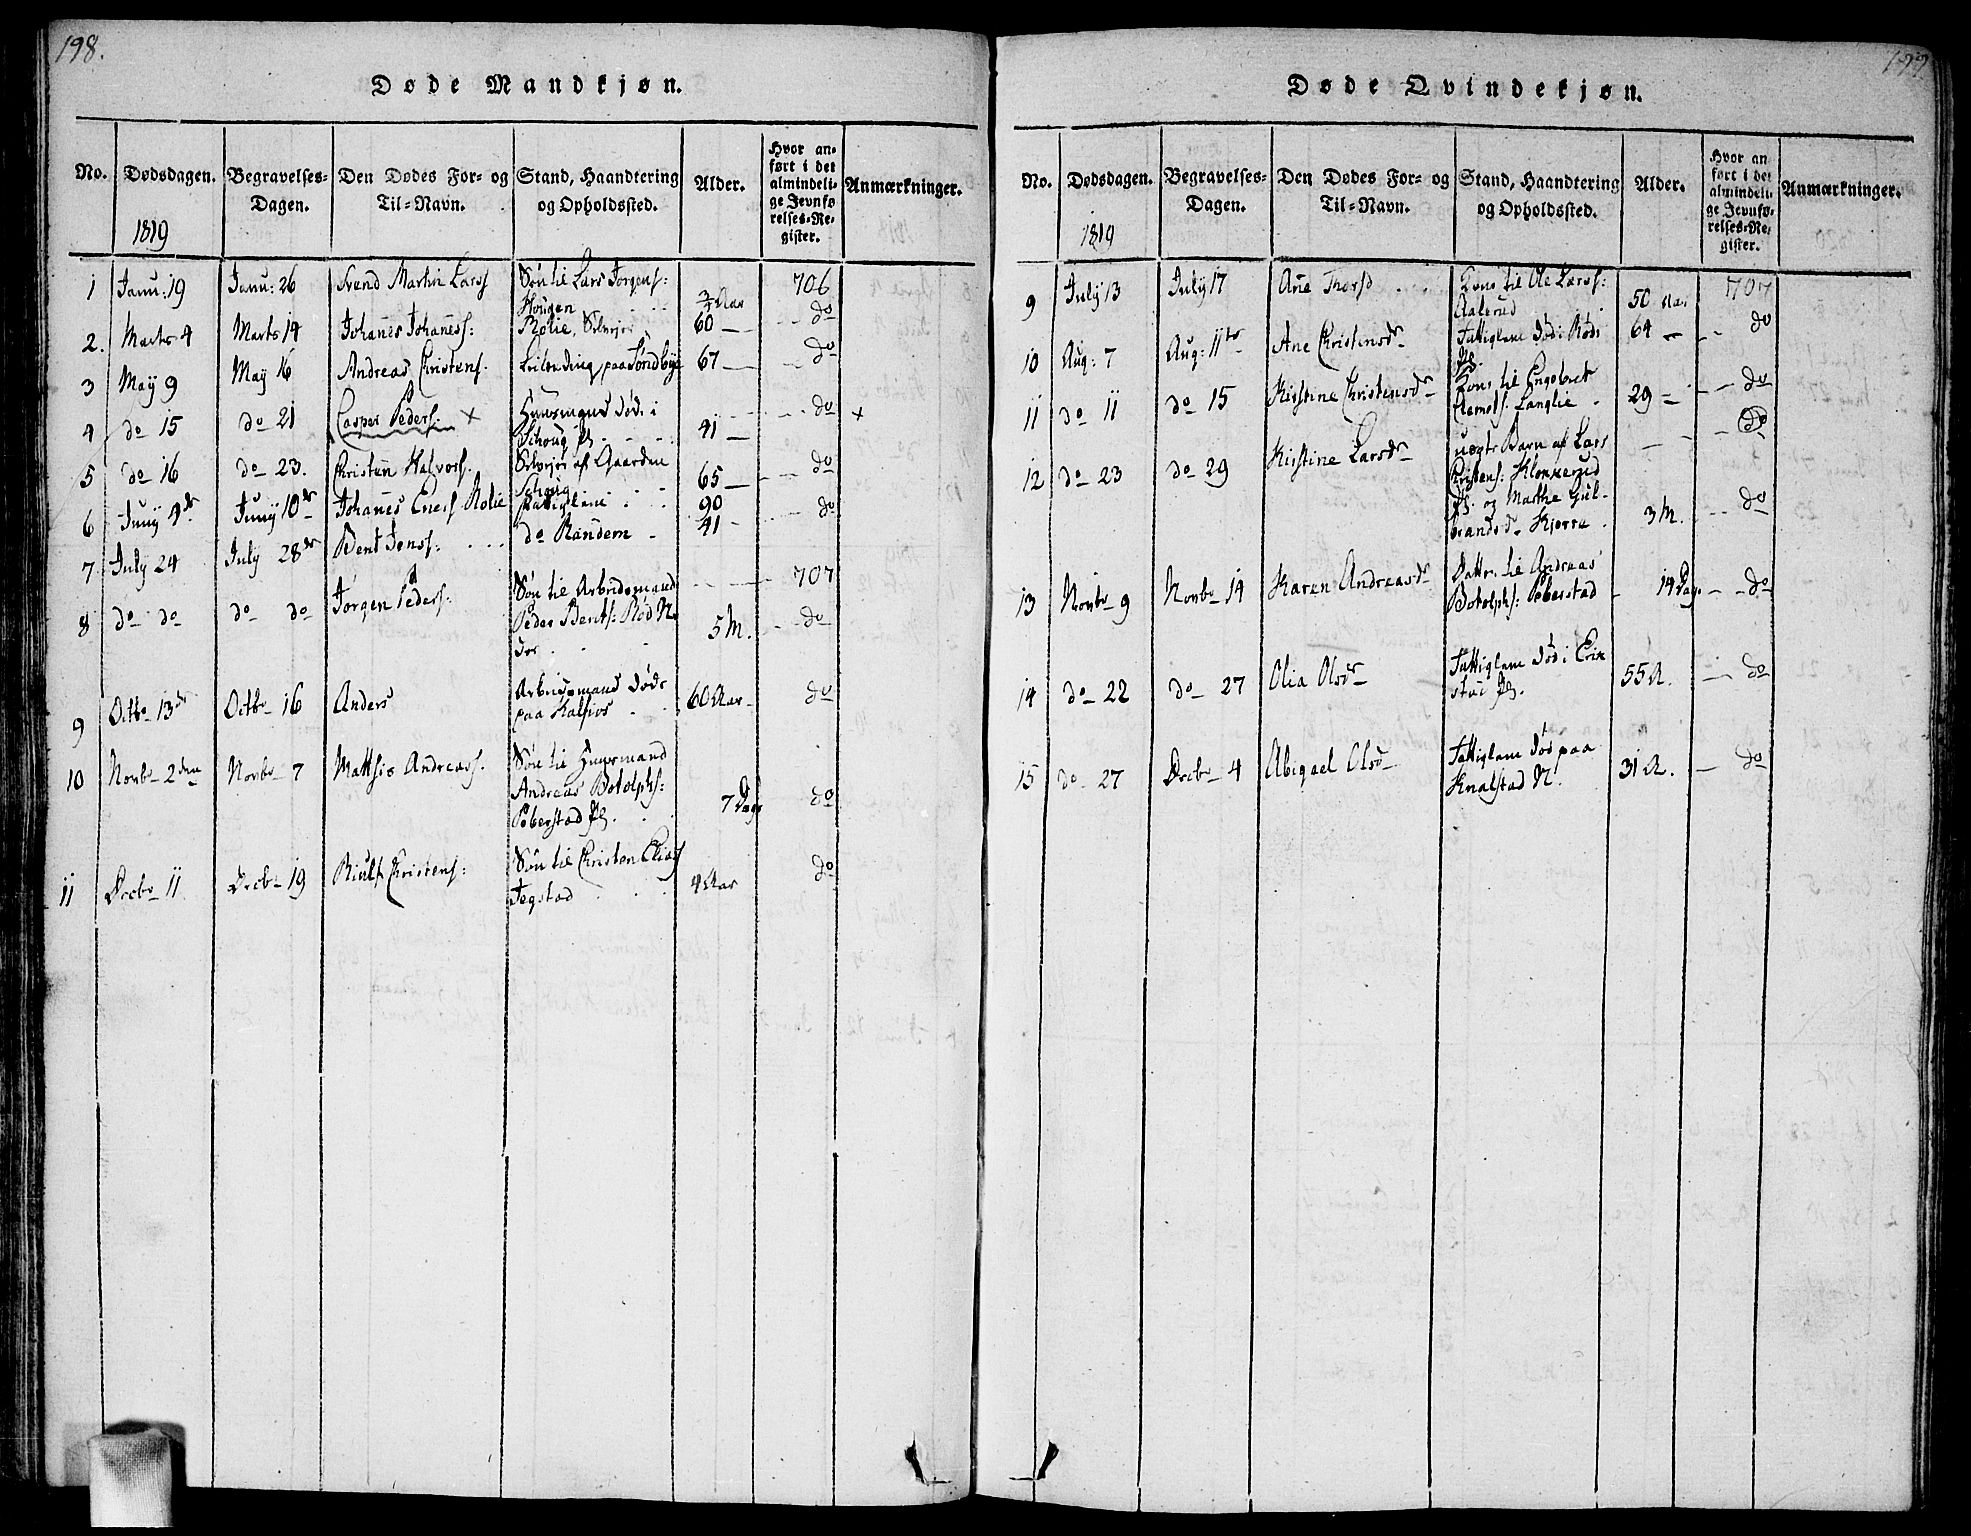 198.
Døde Mandkjøn.
No. Dødsdagen. Begravelses-Dagen. Den Dødes For- og Til-Navn. Stand, Haandtering og Opholdssted. Alder. Hvor anført i det almindelige Jevnførelses-Register. Anmærkninger.
1819
1 Janu: 19 Janu: 26 Svend Martin Larss Søn til Lars Jorgens: 706
Hougen 3/4 Aar
2. Marts 4 Marts 14 Johanes Johaness: Rolie, Selvejer 60 — do
3 May 9 May 16 Andreas Christens. Leilending paa Sondbye 67 — do
4 do 15 do 21 Casper Peders: + Huusmand Døde i do +
Schoug Pl. 41 —
5 do 16 do 23. Christen Halvors. Selvejer af Gaarden 65 — do
Schoug
6 Juny 4de Juny 10de Johanes Eners Rolie Fattiglem 90 do
7 July 24 July 28de Bent Jens: do Randem 41 -
707
8 do do do do Jørgen Peders: Søn til Arbeidsmand
Peder Bents: Rød N. 5 M. do
9 Octbr 13de Octbr 16 Anders Arbeidsmand døde 60 Aar do
paa
10 Novbr 2den Novbr 7 Mattis Andreass. Søn til Huusmand
Andreas Botolphs: 7 Dage do
Poberstad Pl.
11 Decbr 11 Decbr 19 Christens: Søn til Christen Elias do
Tegstad 4 Aar
199
Døde Qvindekjøn.
No. Dødsdagen. Begravelses-Dagen. Den Dødes For- og Til-Navn. Stand, Haandtering og Opholdssted. Alder. Hvor anført i det almindelige Jevnførelses-Register. Anmærkninger.
1819
9 July 13 July 17 Ane Thorsd Kone til Ole Larss: 50 Aar 707
Aalerud
10 Aug: 7 Aug: 11te Ane Christensdr Fattiglem Død i Rødi 64 — do
Pl.
11 do 11 do 15 Kirstine Christensdr Kone til Engebret 29 — do
Langlie
12 do 23 do 29 Kirstine Larsdr uægte Barn af Lars do
Cristens: Klokkerud
Pl. og Marthe Gul-
brandsdr Kjerre 3 M. do
13 Novbr 9 Novbr 14 Karen Andreasdr Dattr. til Andreas
Botolphs: Poberstad 14 Dage do
14 do 22 do 27 Olia Olsdr Fattiglem død i Erik 55 A. do
stue Pl.
15 do 27 Decbr 4 Abigael Olsd Fattiglem død paa 31 A. do
Knalstad N.